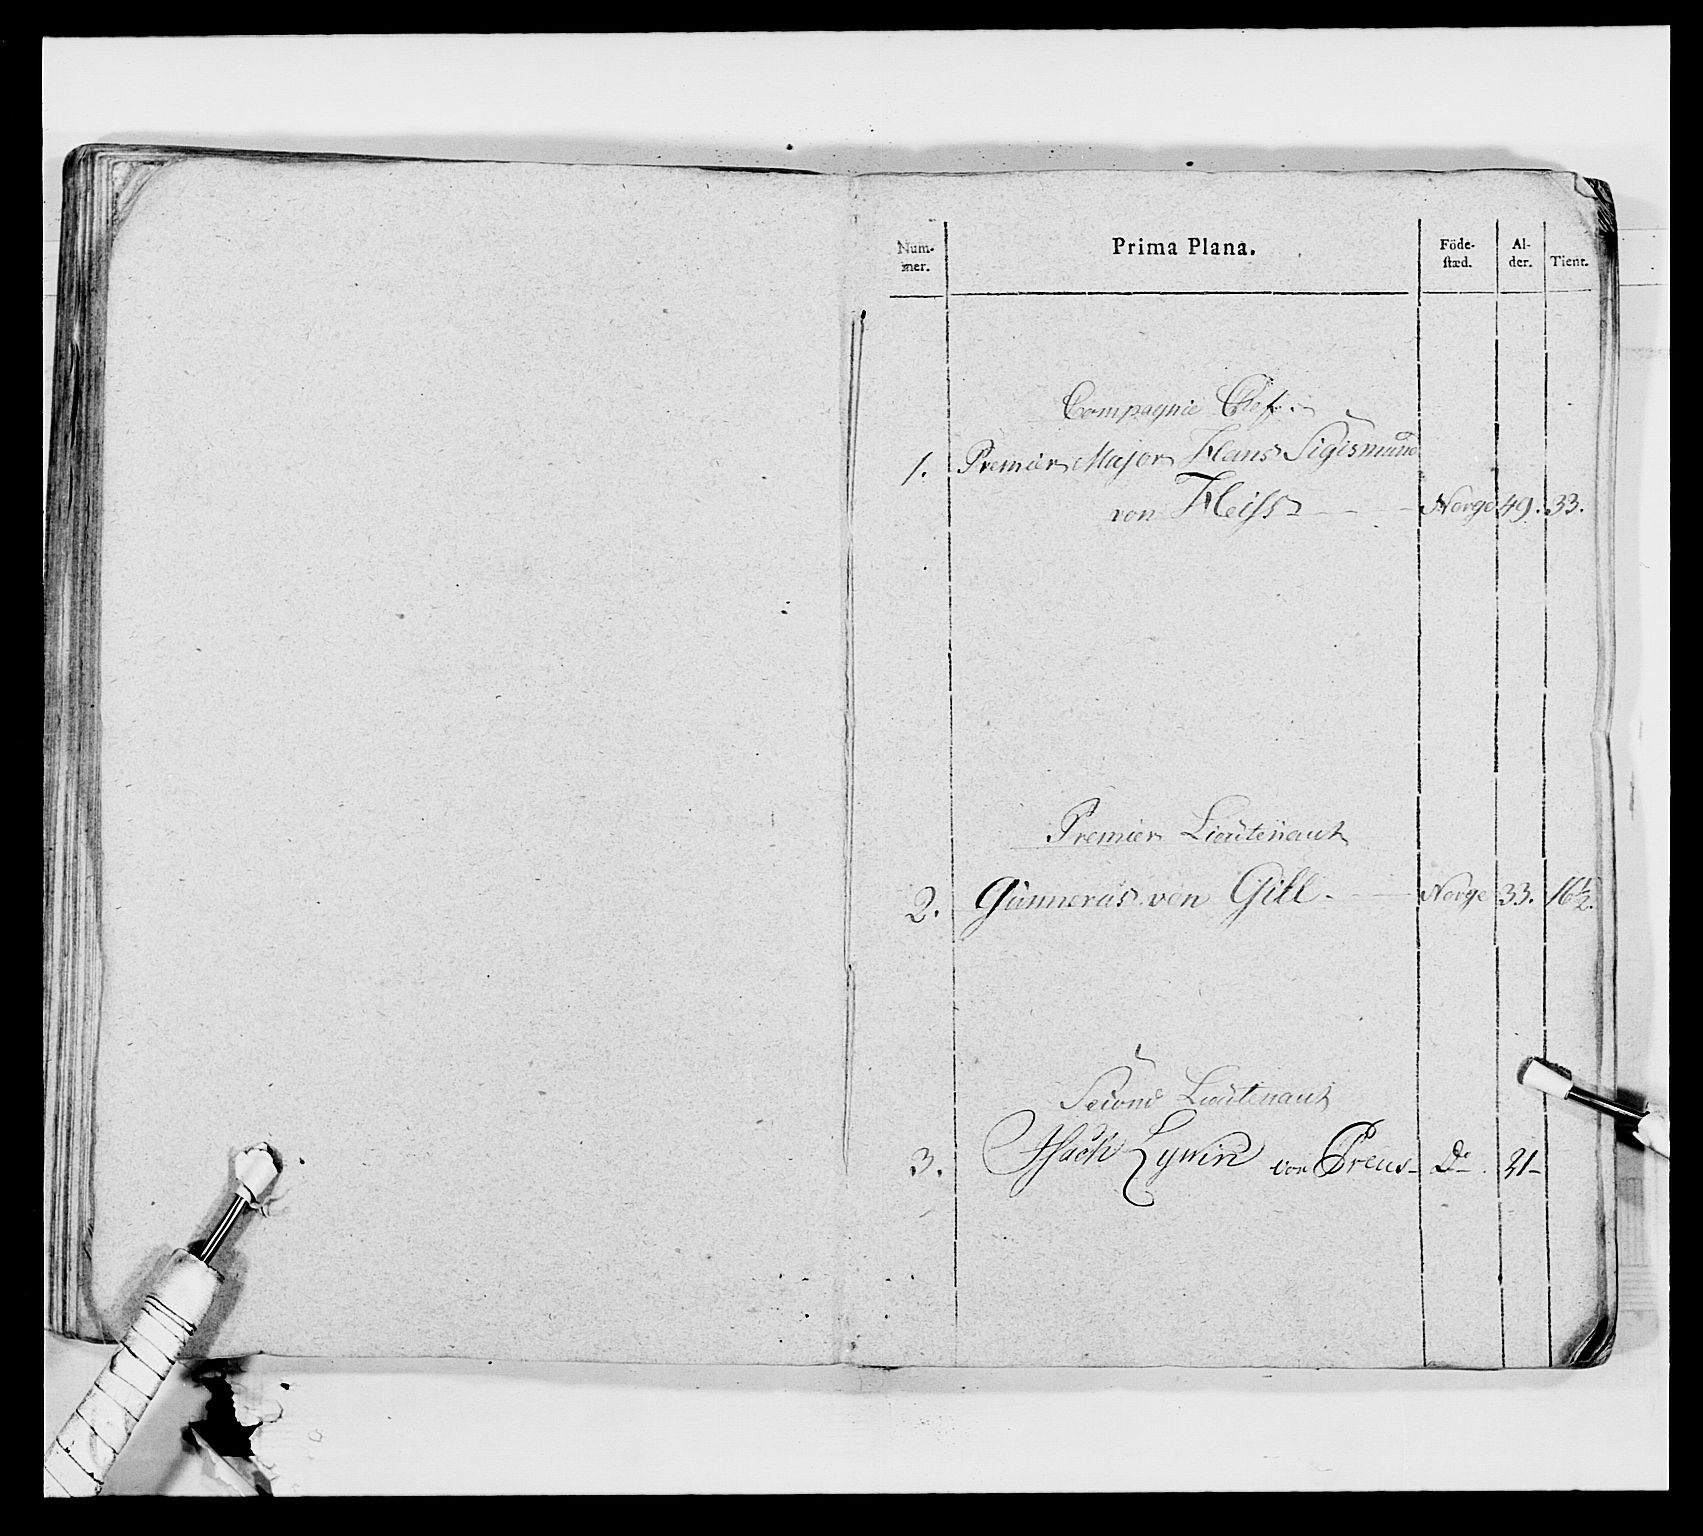 Num- Prima Plana. Föde- Al-
mer. stæd. der. Tient.
Compagnie Chef
1. Premier Major Hans Sigismund
von Heiss - Norge 49. 33.
Premier Lieutenant
2. Gunnerus von Gill - Norge 33. 16 1/2.
Second Lieutenant
3. von Preus - Do. 21 -